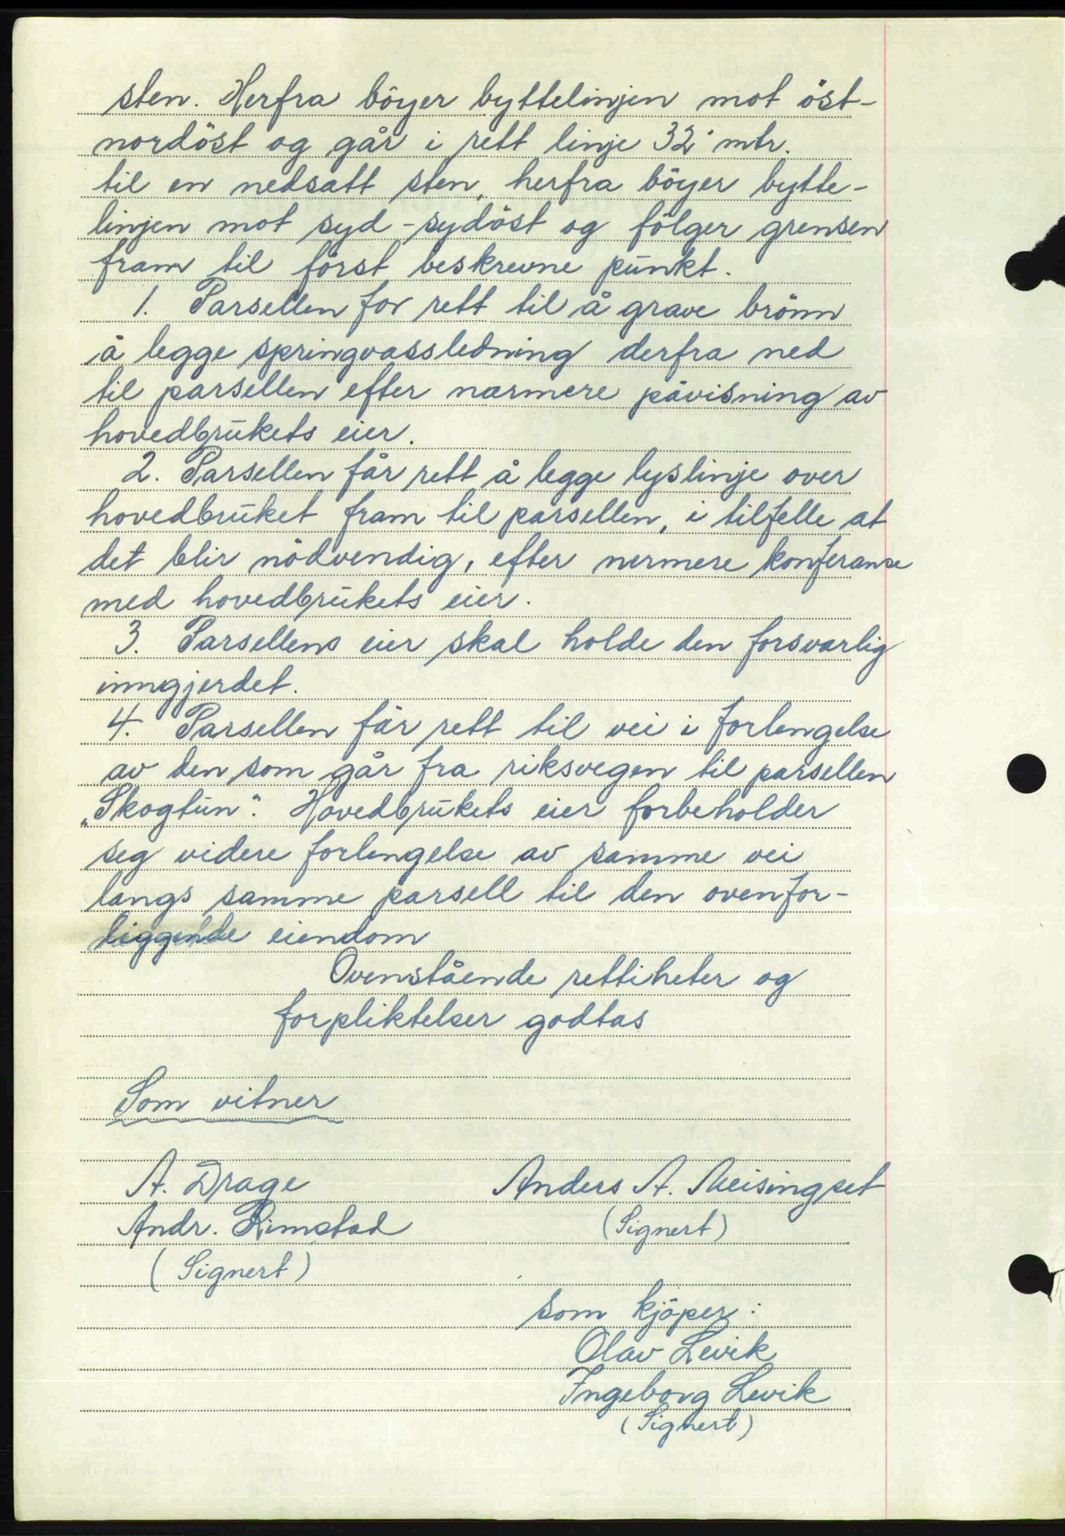 sten. Herfra böyer byttelinjen mot öst-
nordöst og går i rett linje 32 mtr.
til en nedsatt sten, herfra böyer bytte-
linjen mot syd-sydöst og fölger grensen
fram til först beskrevne punkt.
1. Parsellen for rett til å grave brönn
å legge springvassledning derfra ned
til parsellen efter nærmere påvisning av
hovedbrukets eier.
2. Parsellen får rett å legge lyslinje over
hovedbruket fram til parsellen, i tilfelle at
det blir nödvendig, efter nermere konferanse
med hovedbrukets eier.
3. Parsellens eier skal holde den forsvarlig
inngjerdet.
4. Parsellen får rett til vei i forlengelse
av den som går fra riksvegen til parsellen
„Skogtun". Hovedbrukets eier forbeholder
seg videre forlengelse av samme vei
langs samme parsell til den ovenfor-
liggende eiendom
Ovenstående rettiheter og
forpliktelser godtas
Som vitner
A. Drage
Anders A. Meisingset
Andr. Rimstad
(Signert)
(Signert)
som kjöper:
Olav Levik
Ingeborg Levik
(Signert)